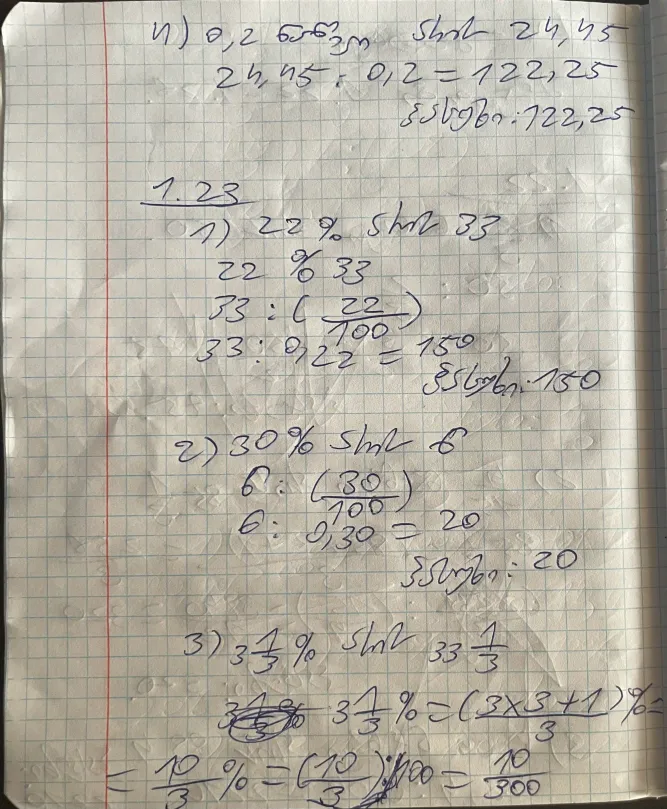 4) 0,2 ნაწილი არის 24,45
24,45 : 0,2 = 122,25
პასუხი: 122,25
1.23
1) 22% არის 33
22 % 33
33 : (22/100)
33 : 0,22 = 150
პასუხი: 150
2) 30% არის 6
6 : (30/100)
6 : 0,30 = 20
პასუხი: 20
3) 3 1/3 % არის 33 1/3
3 1/3 % = (3x3+1)/3 % =
= 10/3 % = (10/3) : 100 = 10/300